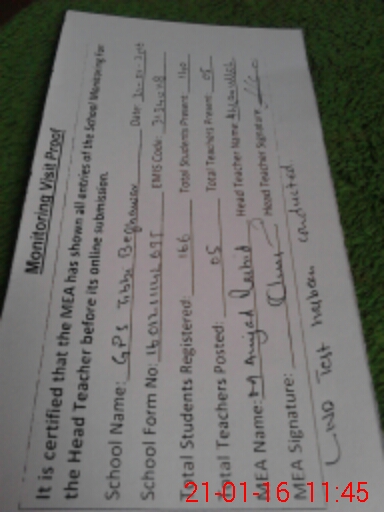 Monitoring Visit Proof
It is certified that the MEA has shown all entries of the School Monitoring for
the Head Teacher before its online submission.
School Name: GPS Tibbi Date:
School Form No: EMIS Code:
Total Students Registered: 166 Total Students Present: 140
Total Teachers Posted: 05 Total Teachers Present: 05
MEA Name: M Amjad Rashid Head Teacher Name:
MEA Signature: Head Teacher Signature
LND Test conducted
21-01-16 11:45